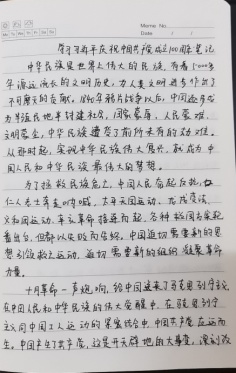 Memo No.
Mo Tu We Th Fr Sa Su
Date / /
学习习近平在庆祝中国共产党成立100周年笔记
中华民族是世界上伟大的民族,有着5000多
年源远流长的文明历史,为人类文明进步作出了
不可磨灭的贡献。1840年鸦片战争以后,中国逐步成
为半殖民地半封建社会,国家蒙辱、人民蒙难、
文明蒙尘,中华民族遭受了前所未有的劫难。
从那时起,实现中华民族伟大复兴,就成为中
国人民和中华民族最伟大的梦想。
为了拯救民族危亡,中国人民奋起反抗,
仁人志士奔走呐喊,太平天国运动、戊戌变法、
义和团运动、辛亥革命接连而起,各种救国方案轮
番出台,但都以失败而告终。中国迫切需要新的思
想引领救亡运动,迫切需要新的组织凝聚革命
力量。
十月革命一声炮响,给中国送来了马克思列宁主义
在中国人民和中华民族的伟大觉醒中,在马克思列宁
主义同中国工人运动的紧密结合中,中国共产党应运而
生。中国产生了共产党,这是开天辟地的大事变,深刻改